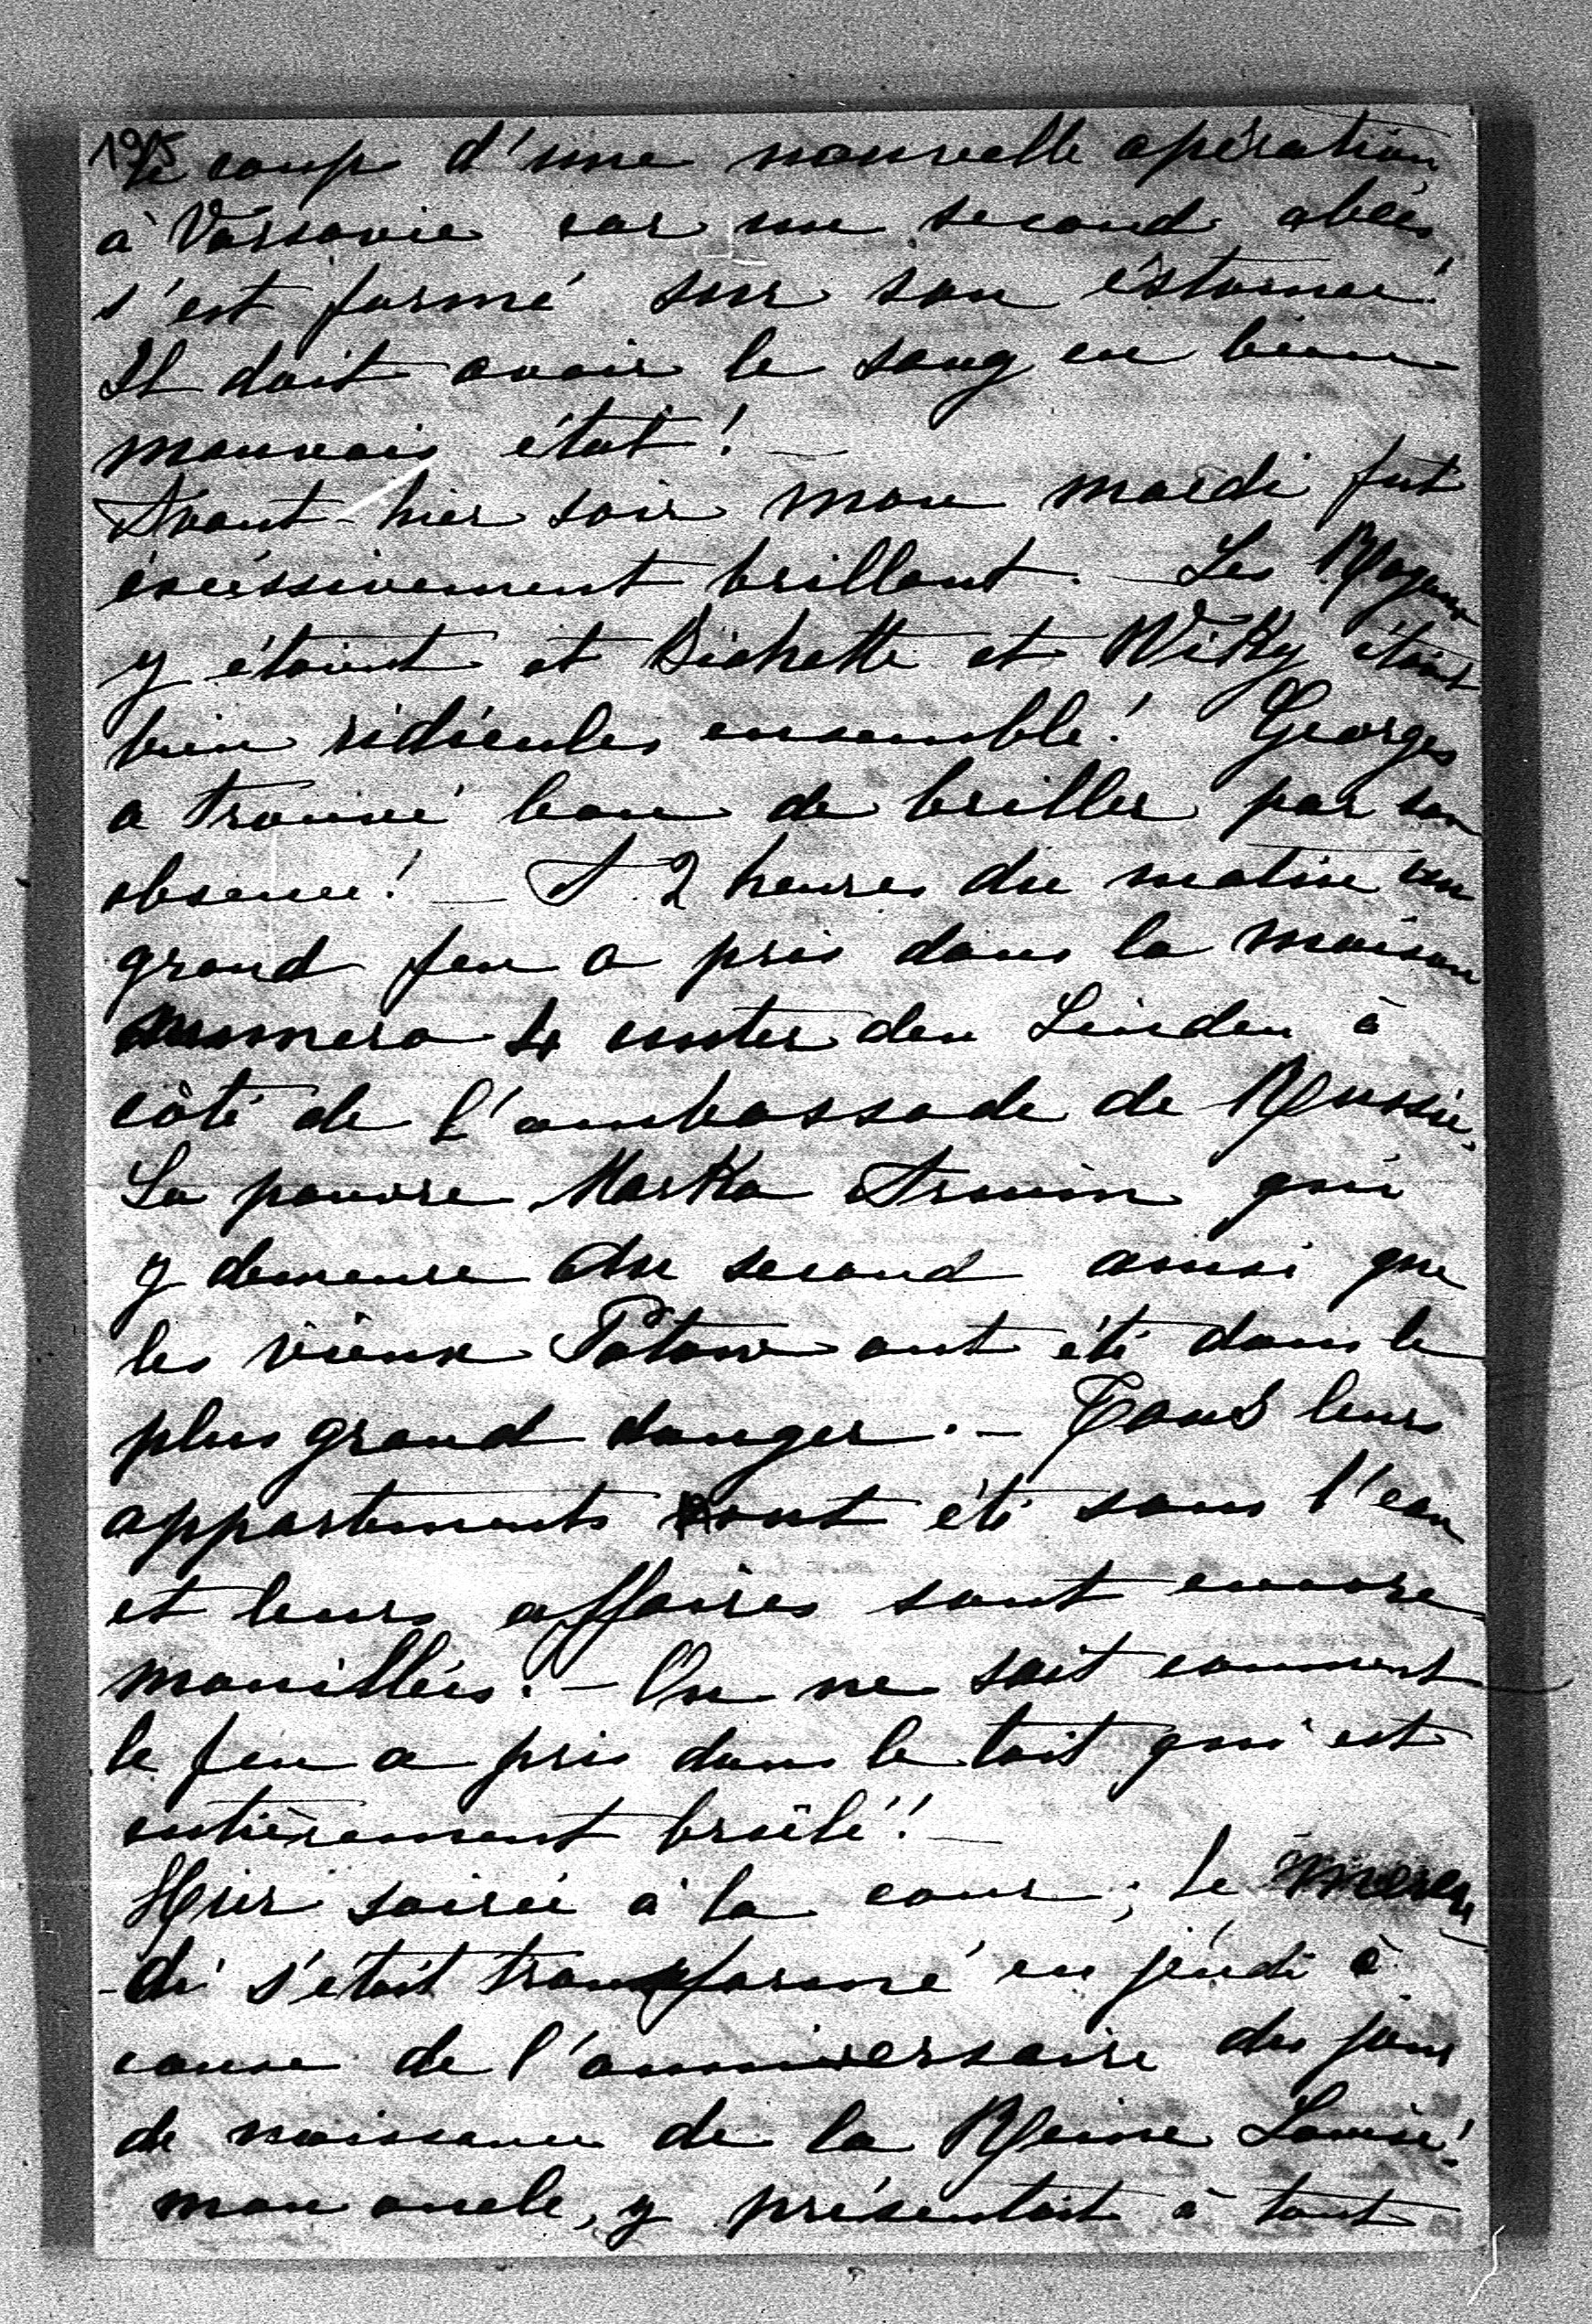 1915
le coup d'une nouvelle opération
à Varsovie car un second abcès
s'est formé sur son éstomac!
Il doit avoir le sang en bien
mauvais état! —
Avant-hier soir mon mardi fut
éxcéssivement brillant. — Les Royaux
y étaient et Bichette et Wiky étaient
bien ridicules ensemble! Georges
a trouvé bon de briller par son
absence! — A 2 heures du matin un
grand feu a pris dans la maison
numero 4 unter den Linden à
côté de l'ambassade de Russie.
La pauvre Marka Arnim qui
y demeure au second ainsi que
les vieux Patow ont été dans le
plus grand danger. — Tous leurs
appartements ont été sous l'eau
et leurs affaires sont encore
mouillées. — On ne sait comment
le feu a pris dans le toit qui est
entièrement brûlé! —
Hier soirée à la cour; le mercre
-di s'était transformé en jeudi à
cause de l'anniversaire du jour
de naissance de la Reine Louise!
mon oncle, y présentait à tout